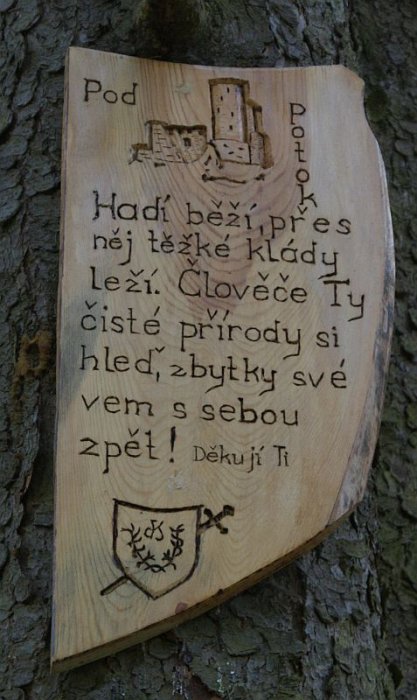 Pod
Potok
Hadí běží, přes
něj těžké klády
leží. Člověče Ty
čisté přírody si
hleď, zbytky své
vem s sebou
zpět! Děkují Ti